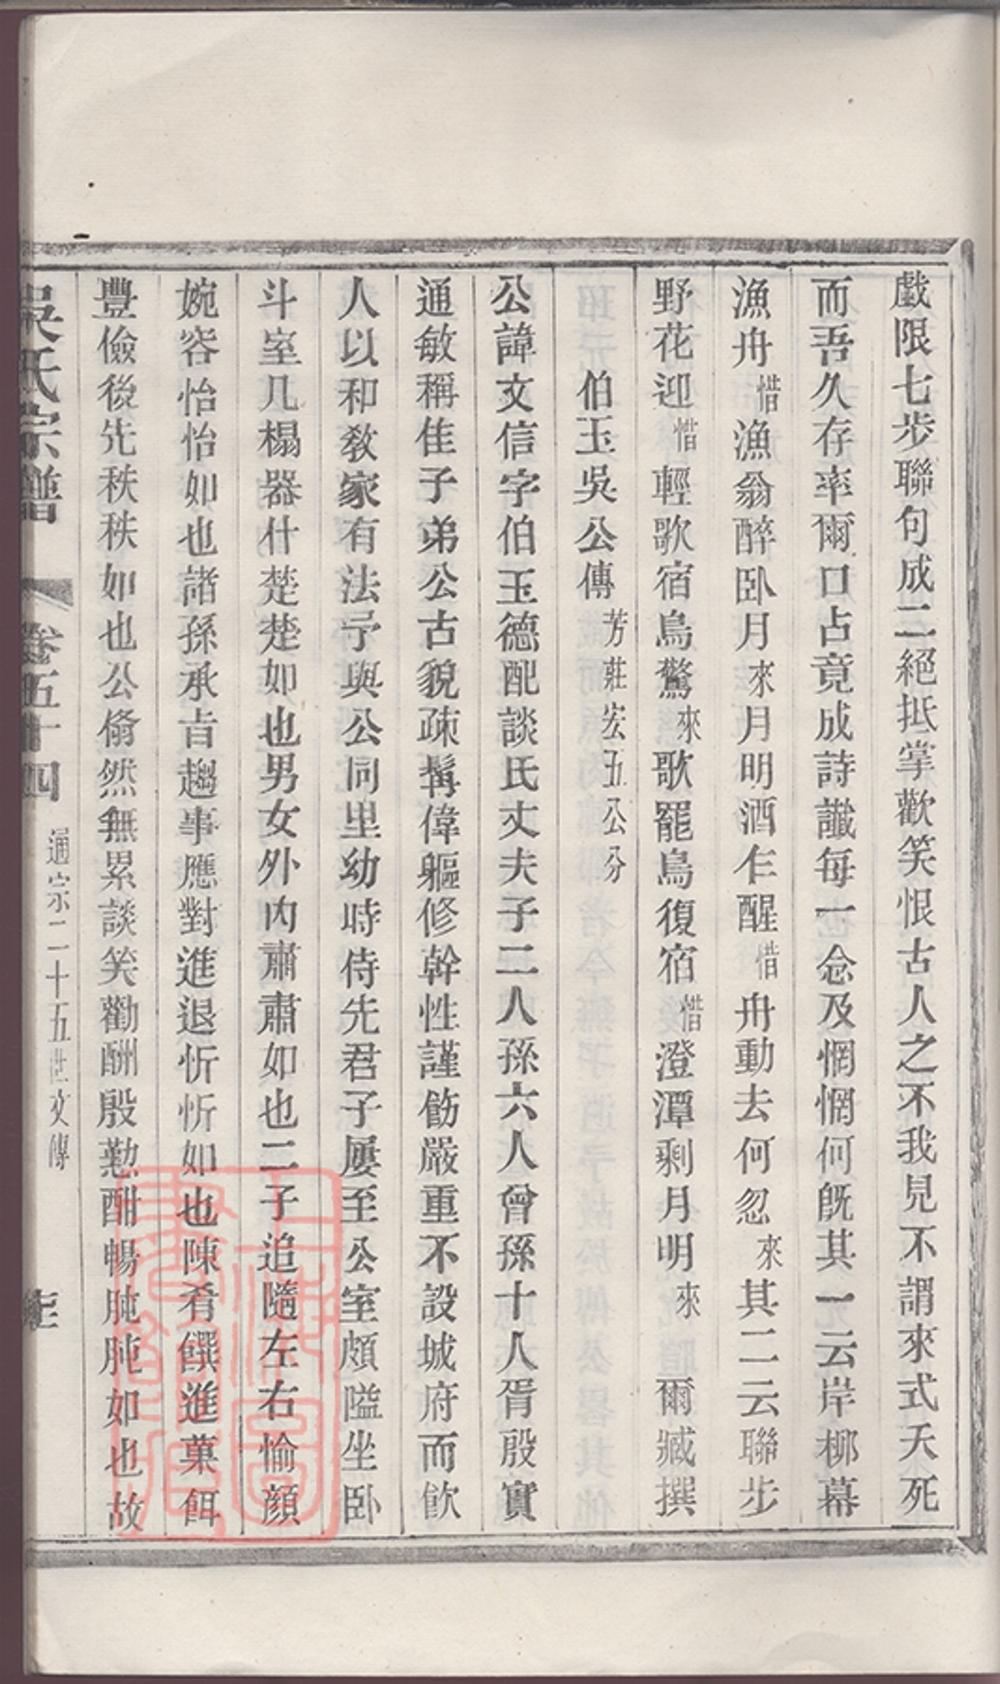 戲限七步聯句成二絕抵掌歡笑恨古人之不我見不謂來式夭死
而吾久存率爾口占竟成詩讖每一念及惘惘何旣其一云岸柳幕
漁舟惜漁翁醉臥月來月明酒乍醒惜舟動去何忽來其二云聯步
野花迎惜輕歌宿鳥驚來歌罷鳥復宿惜澄潭剩月明來 爾臧撰
伯玉吳公傳芳莊宏五公分
公諱文信字伯玉德配談氏丈夫子二人孫六人曾孫十八人胥殷實
通敏稱佳子弟公古貌疎髯偉軀修幹性謹飭嚴重不設城府而飮
人以和敎家有法予與公同里幼時侍先君子屢至公室頗隘坐臥
斗室几榻器什楚楚如也男女外內肅肅如也二子追隨左右愉顏
婉容怡怡如也諸孫承旨趨事應對進退忻忻如也陳肴饌進菓餌
豐儉後先秩秩如也公翛然無累談笑勸酬殷懃酣暢肫肫如也故
吳氏宗譜 卷五十四 適宗二十五世文傳